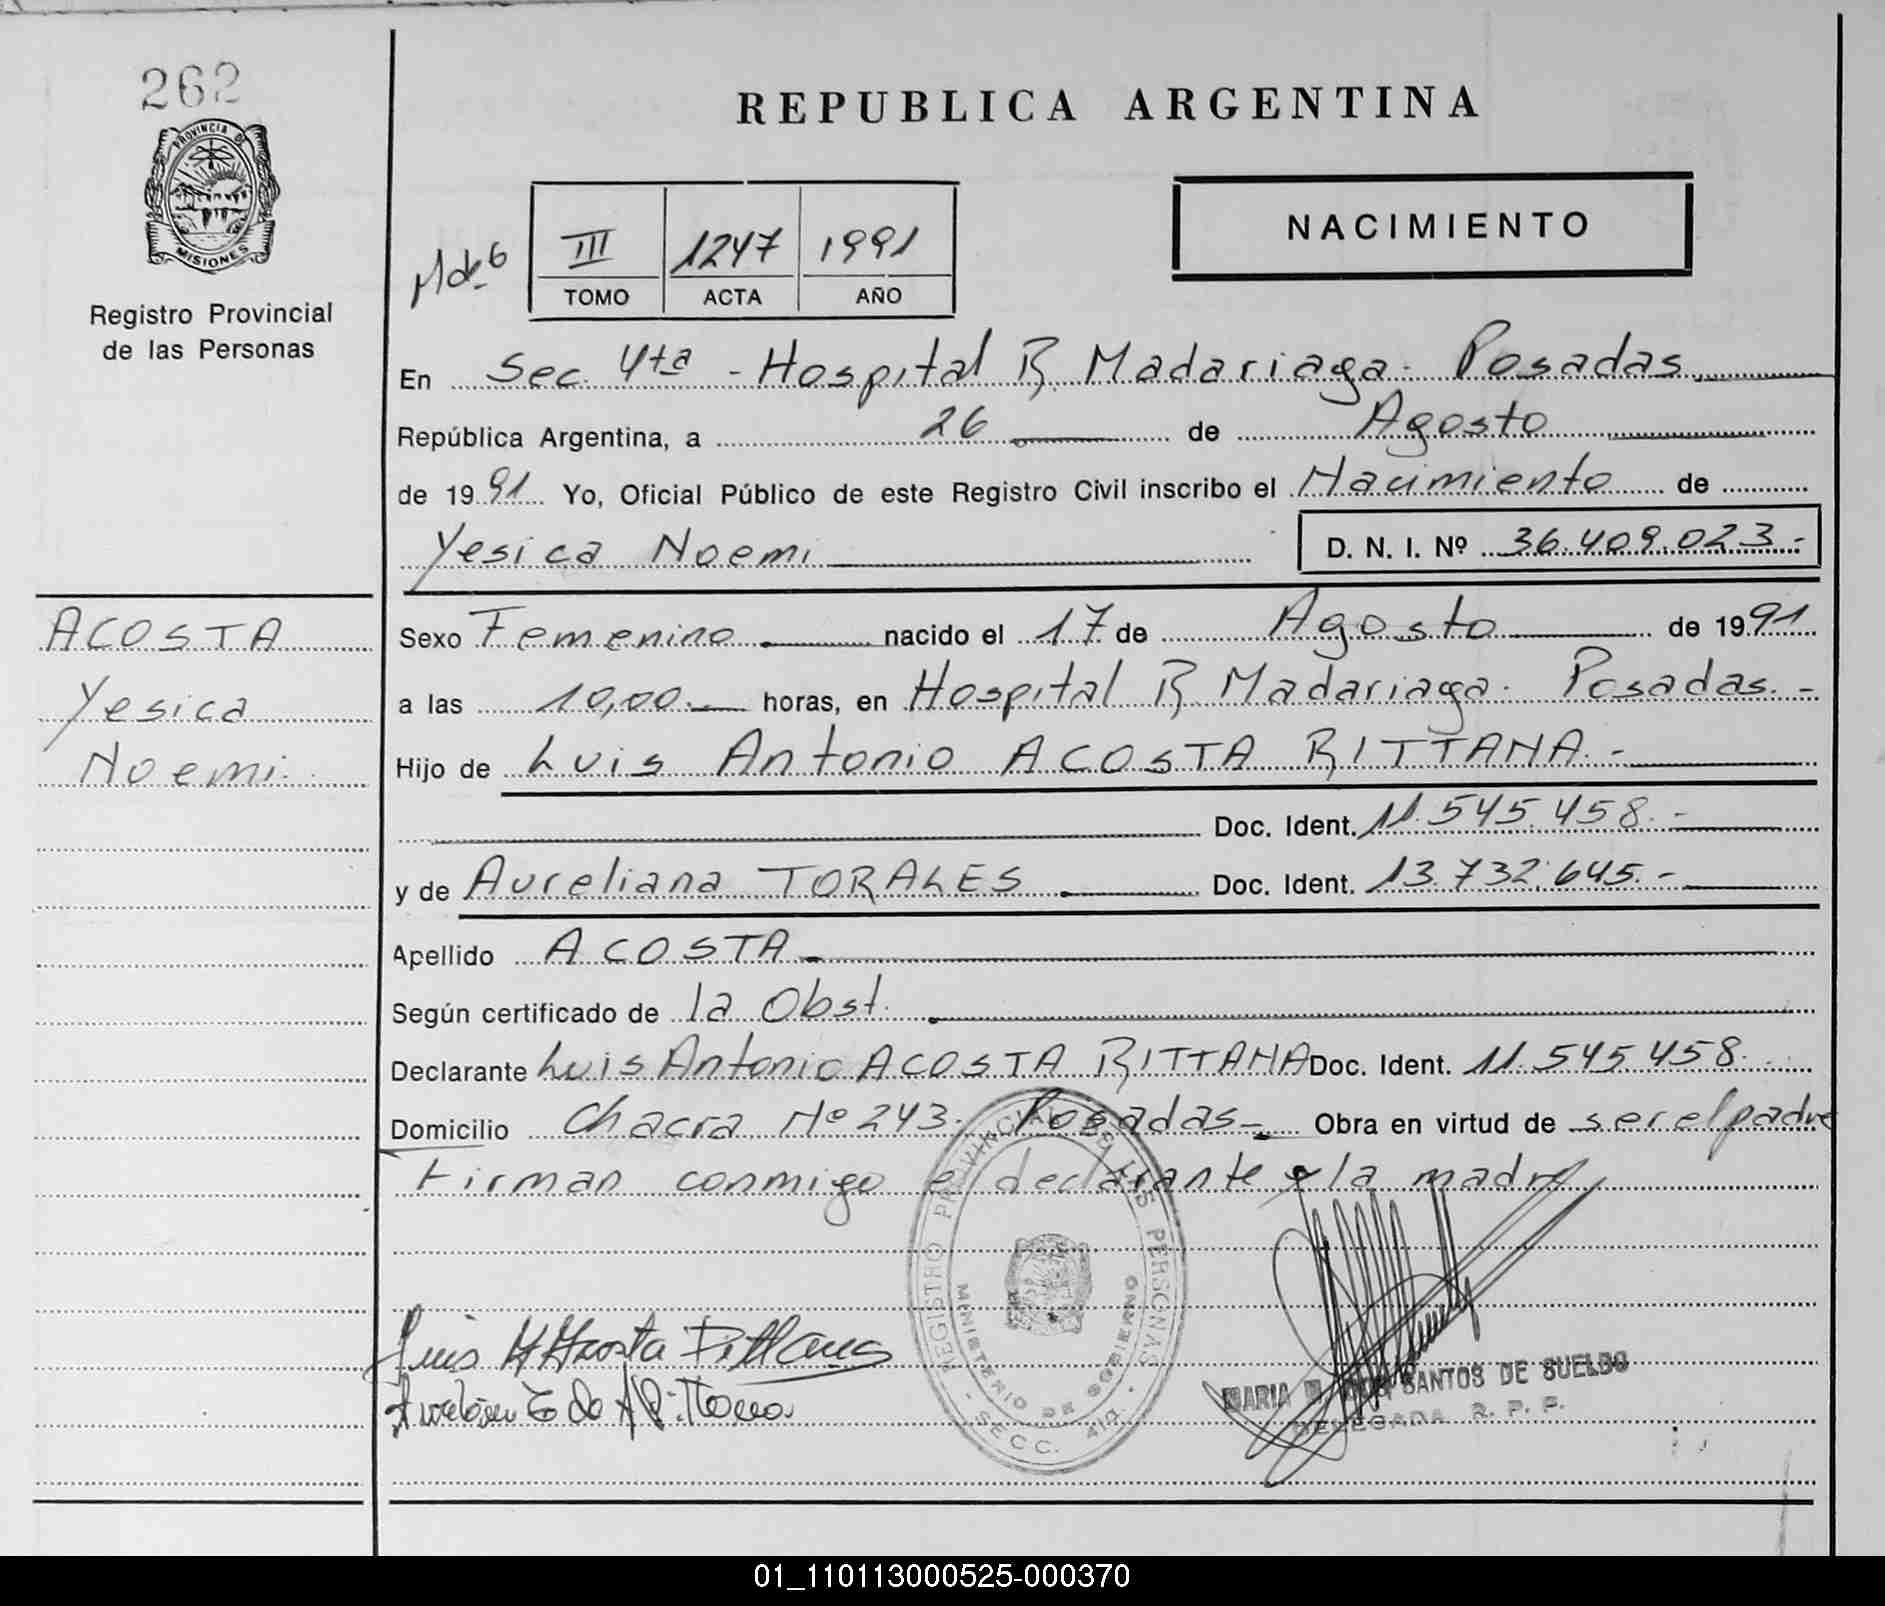 262
PROVINCIA DE
MISIONES
Registro Provincial
de las Personas
REPUBLICA ARGENTINA
NACIMIENTO
III 1247 1991
TOMO ACTA AÑO
En Sec. 4ta - Hospital R. Madariaga. Posadas
República Argentina, a 26 de Agosto
de 1991 Yo, Oficial Público de este Registro Civil inscribo el Nacimiento de
Yesica Noemi D. N. I. Nº 36.409.023.-
ACOSTA
Yesica
Noemi.
Sexo Femenino nacido el 17 de Agosto de 1991
a las 10,00.- horas, en Hospital R. Madariaga. Posadas.-
Hijo de Luis Antonio ACOSTA RITTANA.-
Doc. Ident. 11.545.458.-
y de Aureliana TORALES Doc. Ident. 13.732.645.-
Apellido ACOSTA
Según certificado de la Obst.
Declarante Luis Antonio ACOSTA RITTANA Doc. Ident. 11.545.458.
Domicilio Chacra Nº 243. Posadas.- Obra en virtud de ser el padre
Firman conmigo el declarante y la madre
REGISTRO PROVINCIAL DE LAS PERSONAS
MINISTERIO DE GOBIERNO
- SECC. 4ta. -
Luis A Acosta Rittana
MARIA D. DOS SANTOS DE SUELDO
DELEGADA R. P. P.
01_110113000525-000370